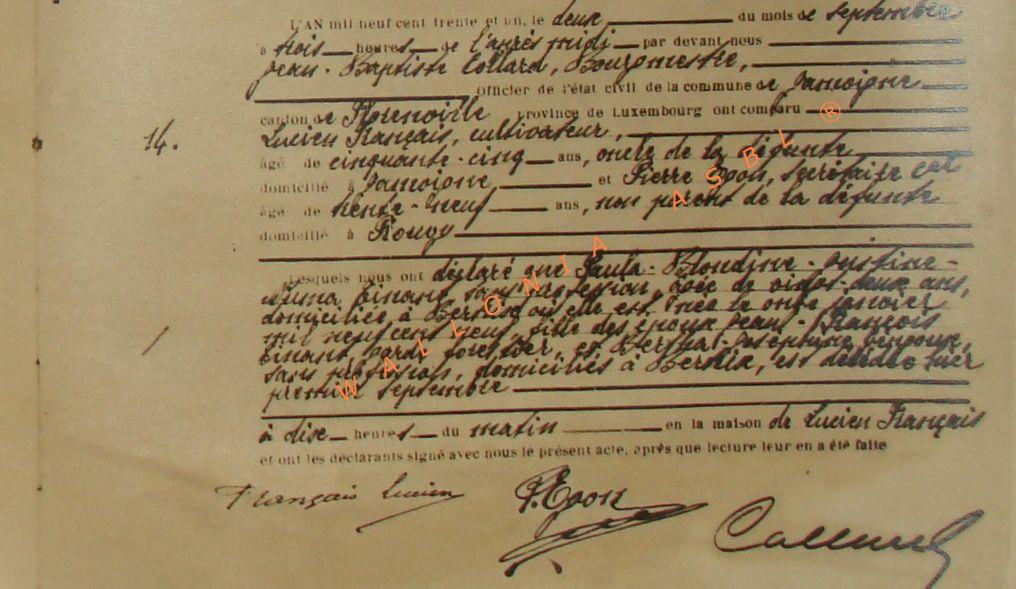 L'AN mil neuf cent trente et un, le deux du mois de septembre
à trois heures de l'après midi par devant nous
Jean-Baptiste Collard, Bourgmestre,
Officier de l'état civil de la commune de Jamoigne
canton de Florenville province de Luxembourg ont comparu
14.
Lucien Français, cultivateur,
âgé de cinquante-cinq ans, oncle de la défunte
domicilié à Jamoigne et Pierre Egon, secrétaire
âgé de trente-neuf ans, non parent de la défunte
domicilié à Rouvy
Lesquels nous ont déclaré que Paula-Blondine-
sans profession, âgée de vingt-deux ans,
domiciliée à où elle est née le onze janvier
mil neuf cent neuf, fille des époux Jean-François
garde forestier, et Joséphine
sans profession, domiciliés à est décédée hier
premier septembre
à dise heures du matin en la maison de Lucien Français
et ont les déclarants signé avec nous le présent acte, après que lecture leur en a été faite
Français Lucien P. Egon Collard
WALLONIA ASBL ®